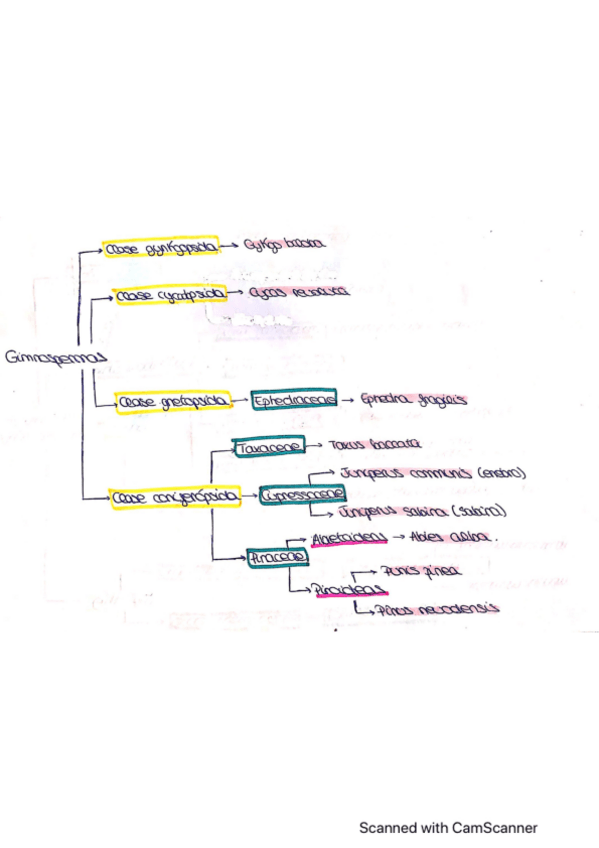 Gimnospermas
Clase gynkgopsida → Gykgo biloba
Clase cycadopsida → Cycas revoluta
Clase gnetopsida → Ephedraceae → Ephedra fragilis
Clase coniferópsida
Taxaceae → Taxus baccata
Cupressaceae
Juniperus communis (enebro)
Juniperus sabina (sabina)
Pinaceae
Abietoideas → Abies alba.
Pinoideas
Pinus pinea
Pinos
Scanned with CamScanner